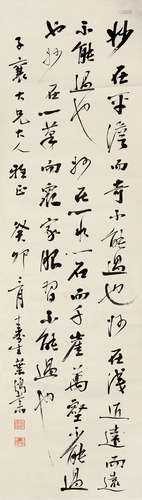 妙在平澹而奇不能過也妙在淺近遠而遠
不能過也妙在一水一石而千崖萬壑不能過
也妙在一筆而衆家服習不能過也
子襄大兄大人雅正癸卯二月葉